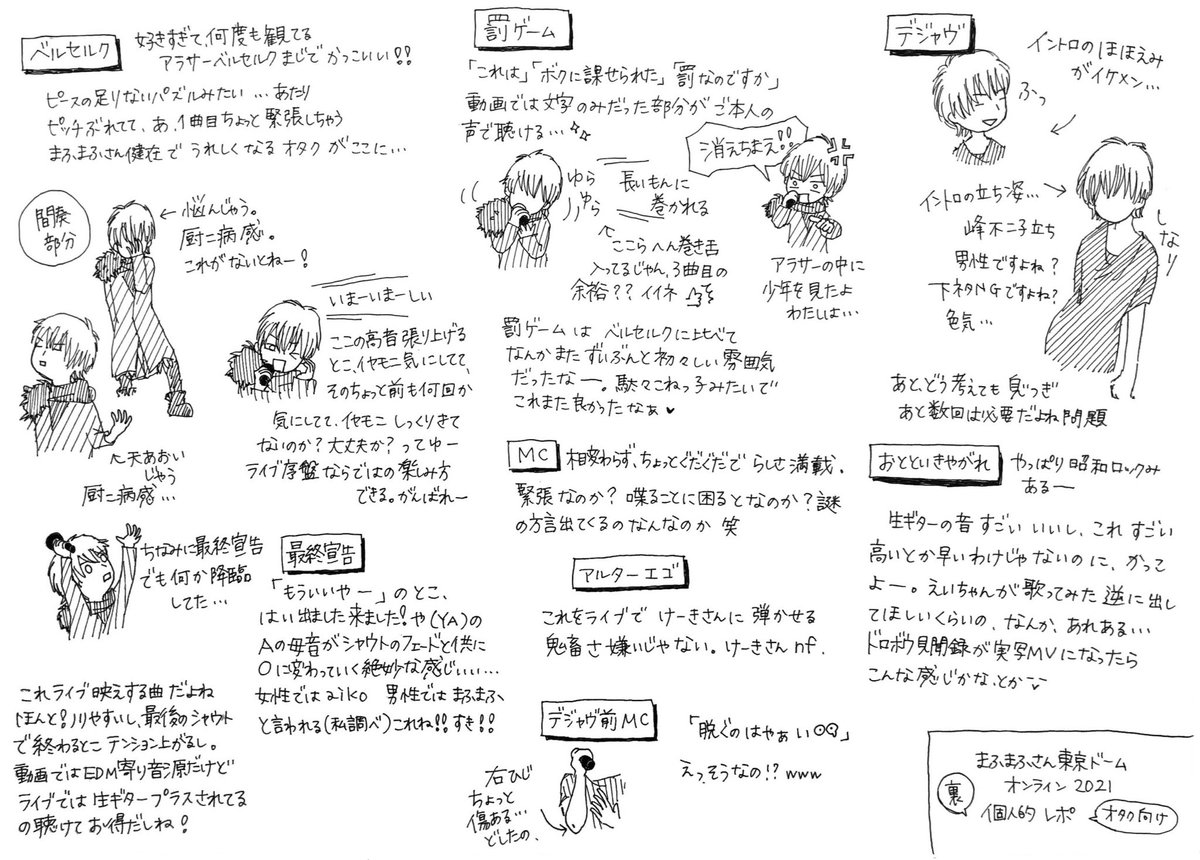 ベルセルク
好きすぎて、何度も観てる
アラサーベルセルクまじでかっこいい!!
ピースの足りないパズルみたい…あたり
ピッチぶれてて、あ、1曲目ちょっと緊張しちゃう
まふまふさん健在でうれしくなるオタクがここに…
間奏
部分
←悩んじゃう。
厨二病感。
これがないとねー!
いまーいまーしい
ここの高音張り上げる
とこ、イヤモニ気にしてて、
そのちょっと前も何回か
気にしてて、イヤモニしっくりきて
ないのか?大丈夫か?ってゆー
ライブ序盤ならではの楽しみ方
できる。がんばれー
↖天あおい
じゃう
厨二病感…
ちなみに最終宣告
でも何か降臨
してた…
これライブ映えする曲だよね
ほんと!ノリやすいし、最後のシャウト
で終わるとこテンション上がるし。
動画ではEDM寄り音源だけど
ライブでは生ギタープラスされてる
の聴けてお得だしね!
最終宣告
「もういいやー」のとこ、
はい出ました来ました!や(YA)の
Aの母音がシャウトのフェードと供に
Oに変わっていく絶妙な感じぃぃ…
女性ではaiko 男性ではまふまふ
と言われる(私調べ)これね!!すき!!
罰ゲーム
「これは」「ボクに課せられた」「罰なのですか」
動画では文字のみだった部分がご本人の
声で聴ける…
ゆら
ゆら
長いもんに
巻かれる
↖ここらへん巻き舌
入ってるじゃん、3曲目の
余裕??イイネ
消えちまえ!!
アラサーの中に
少年を見たよ
わたしは…
罰ゲームはベルセルクに比べて
なんかまたずいぶんと初々しい雰囲気
だったなー。駄々こねっ子みたいで
これまた良かったなぁ♥
MC
相変わらず、ちょっとぐだぐだでらしさ満載。
緊張なのか?喋ることに困るとなのか?謎
の方言出てくるのなんなのか 笑
アルターエゴ
これをライブでけーきさんに弾かせる
鬼畜さ嫌いじゃない。けーきさんnf.
デジャヴ前MC
「脱ぐのはやぁい」
えっ、そうなの!?www
右ひじ
ちょっと
傷ある…
どしたの、
デジャヴ
イントロのほほえみ
がイケメン…
ふっ
イントロの立ち姿…
峰不二子立ち
男性ですよね?
下ネタNGですよね?
色気…
しなり
あと、どう考えても息つぎ
あと数回は必要だよね問題
おとといきやがれ
やっぱり昭和ロックみ
あるー
生ギターの音すごいいいし、これすごい
高いとか早いわけじゃないのに、かって
よー。えいちゃんが歌ってみた逆に出し
てほしいくらいの、なんか、あれある…
ドロボウ見聞録が実写MVになったら
こんな感じかな、とか
まふまふさん東京ドーム
オンライン2021
裏
個人的レポ
オタク向け